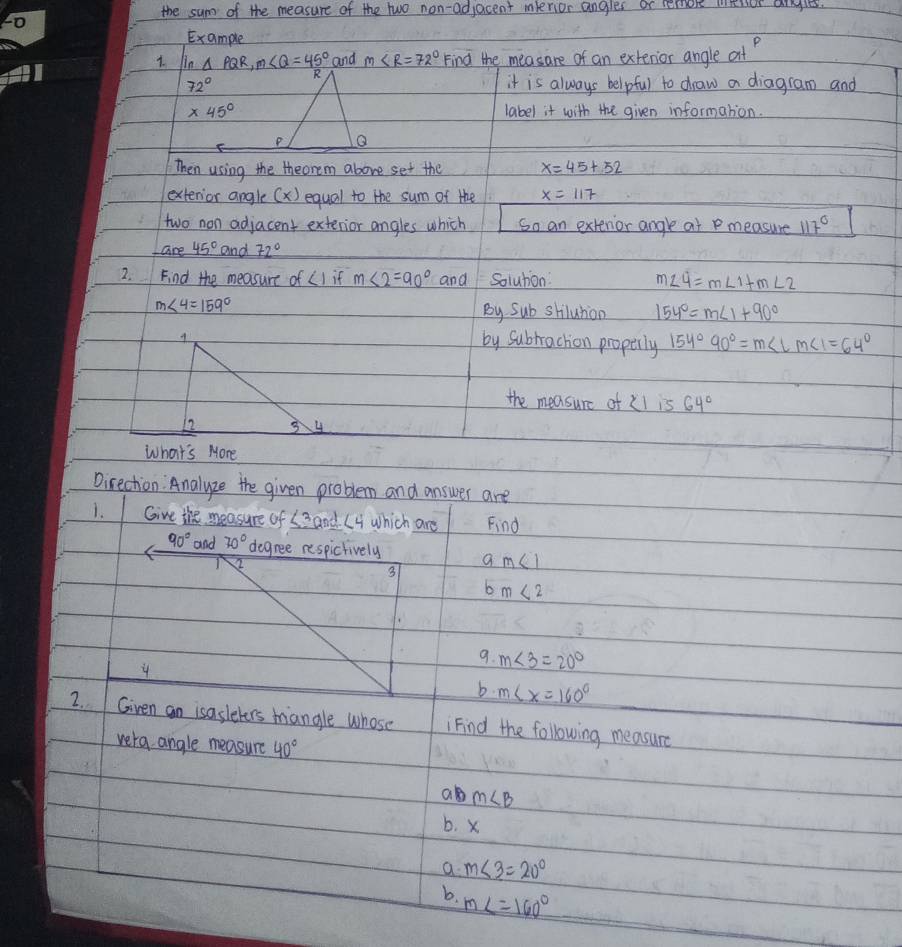 the sum of the measure of the two non-adjacent interior angles or remote interior angles.
Example
1. In Δ PQR, m<Q = 45° and m <R = 72° Find the measure of an exterior angle at P
72°
x 45°
R
P
Q
it is always helpful to draw a diagram and
label it with the given information.
Then using the theorem above set the
exterior angle (x) equal to the sum of the
two non adjacent exterior angles which
are 45° and 72°
x = 45 + 52
x = 117
So an exterior angle at P measure 117°
2. Find the measure of <1 if m<2 = 90° and
m<4 = 159°
1
2
3 4
Solution:
m∠4 = m∠1 + m∠2
By Sub stilution 154° = m<1 + 90°
by Subtraction properly 154° 90° = m<1 m<1 = 64°
the measure of <1 is 64°
What's More
Direction: Analyze the given problem and answer are
1. Give the measure of <3 and <4 which are
90° and 70° degree respictively
1 2
3
4
Find
a m<1
b m<2
a. m<3 = 20°
b. m<x = 160°
2. Given an isasleters triangle whose
verg angle measure 40°
iFind the following measure
ab m<B
b. x
a. m<3 = 20°
b. m< = 160°